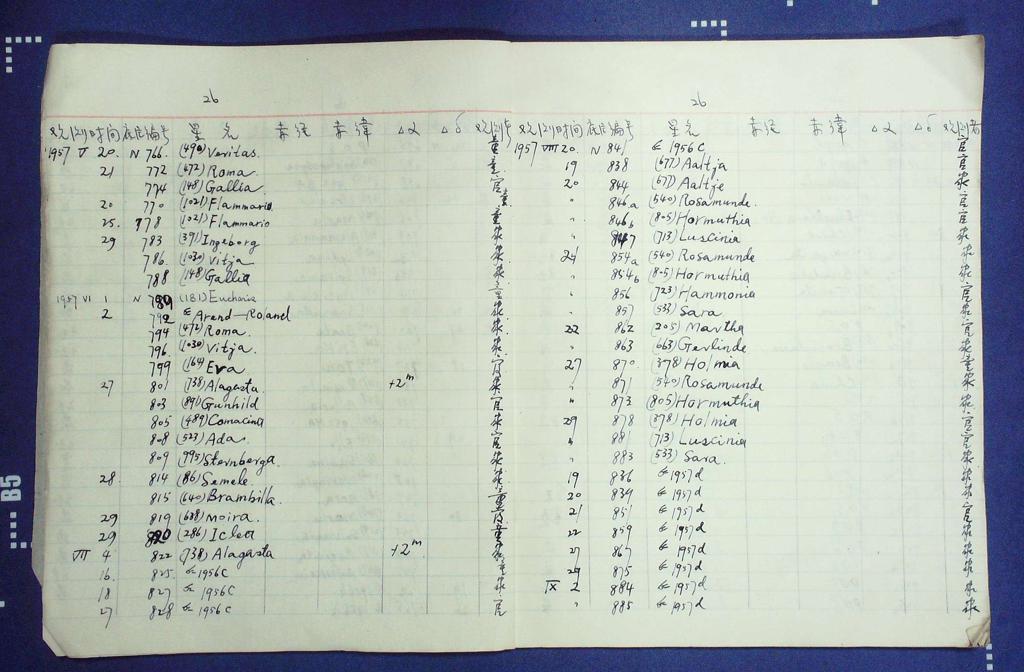 26
观测时间 底片编号 星名 赤经 赤纬 Δα Δδ 观测者
1957 V 20. N 766. (490) Veritas. 董
21 772 (672) Roma. 董
774 (148) Gallia. 官
20 770 (1021) Flammario
25. 778 (1021) Flammario 董
29 783 (391) Ingeborg
786. (1030) Vitja
788 (148) Gallia
1957 VI 1 N 789 (181) Eucharis
2 792 ☄ Arend—Roland
794 (472) Roma.
796. (1030) Vitja.
799 (164) Eva
27 801 (738) Alagasta +2m
803 (891) Gunhild 官
805 (489) Comacina
808 (523) Ada.
809 (995) Sternberga.
28 814 (86) Semele.
815 (640) Brambilla.
29 819 (638) Moira.
29 820 (286) Iclea 董
VII 4 822 (738) Alagasta +2m.
16. 825. ☄ 1956c
18 827 ☄ 1956c
27 828 ☄ 1956c 官
26
观测时间 底片编号 星名 赤经 赤纬 Δα Δδ 观测者
1957 VIII 20. N 841 ☄ 1956c 官
19 838 (677) Aaltje 官
20 844 (677) Aaltje
〃 846a (540) Rosamunde. 官
〃 846b (805) Hormuthia 官
〃 847 (713) Luscinia
21 854a (540) Rosamunde
〃 854b (805) Hormuthia
〃 856 (723) Hammonia
〃 857 (533) Sara
22 862 (205) Martha
〃 863 (663) Gerlinde
27 870. (378) Holmia
〃 871 (540) Rosamunde
〃 873 (805) Hormuthia
29 878 (378) Holmia
〃 881 (713) Luscinia
883 (533) Sara
19 836 ☄ 1957d
20 839 ☄ 1957d
21 851 ☄ 1957d
22 859 ☄ 1957d
27 867 ☄ 1957d
29 875 ☄ 1957d
IX 2 884 ☄ 1957d
〃 885 ☄ 1957d
B5